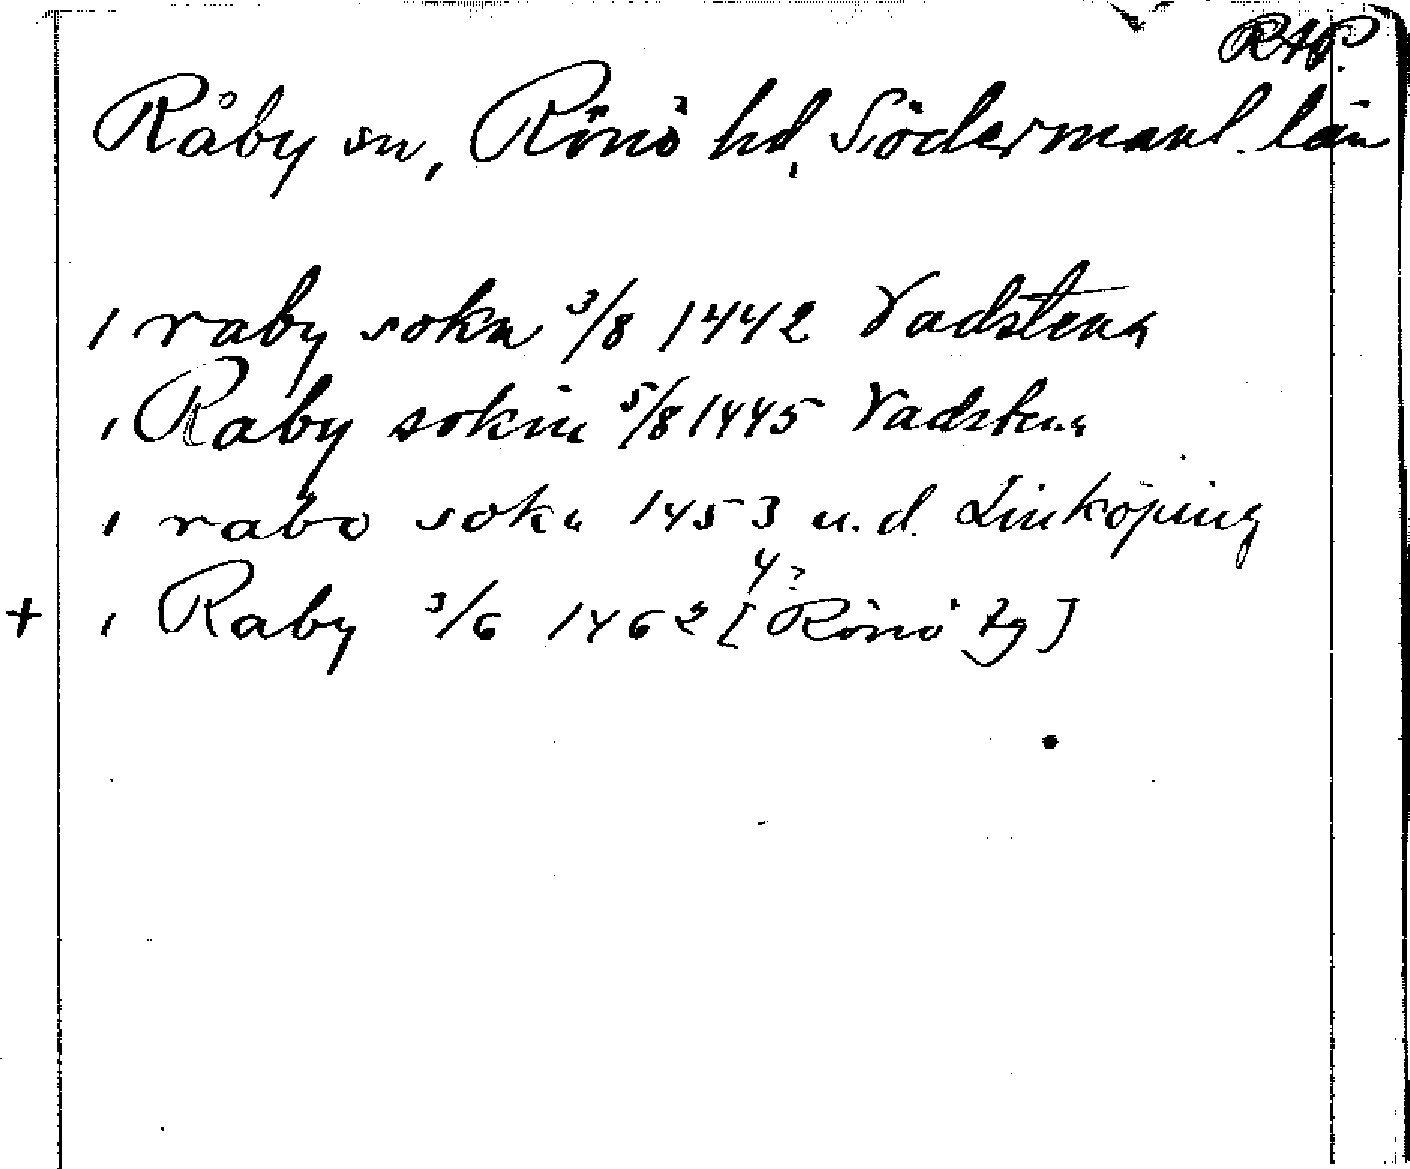 RAP.
Råby sn, Rönö hd, Södermanl. län
i raby sokn 3/8 1442 Vadstena
i Raby sokin 5/8 1445 Vadstena
i rabo sokn 1453 u.d. Linköping
4?
+ i Raby 3/6 1462 [Rönö tg]